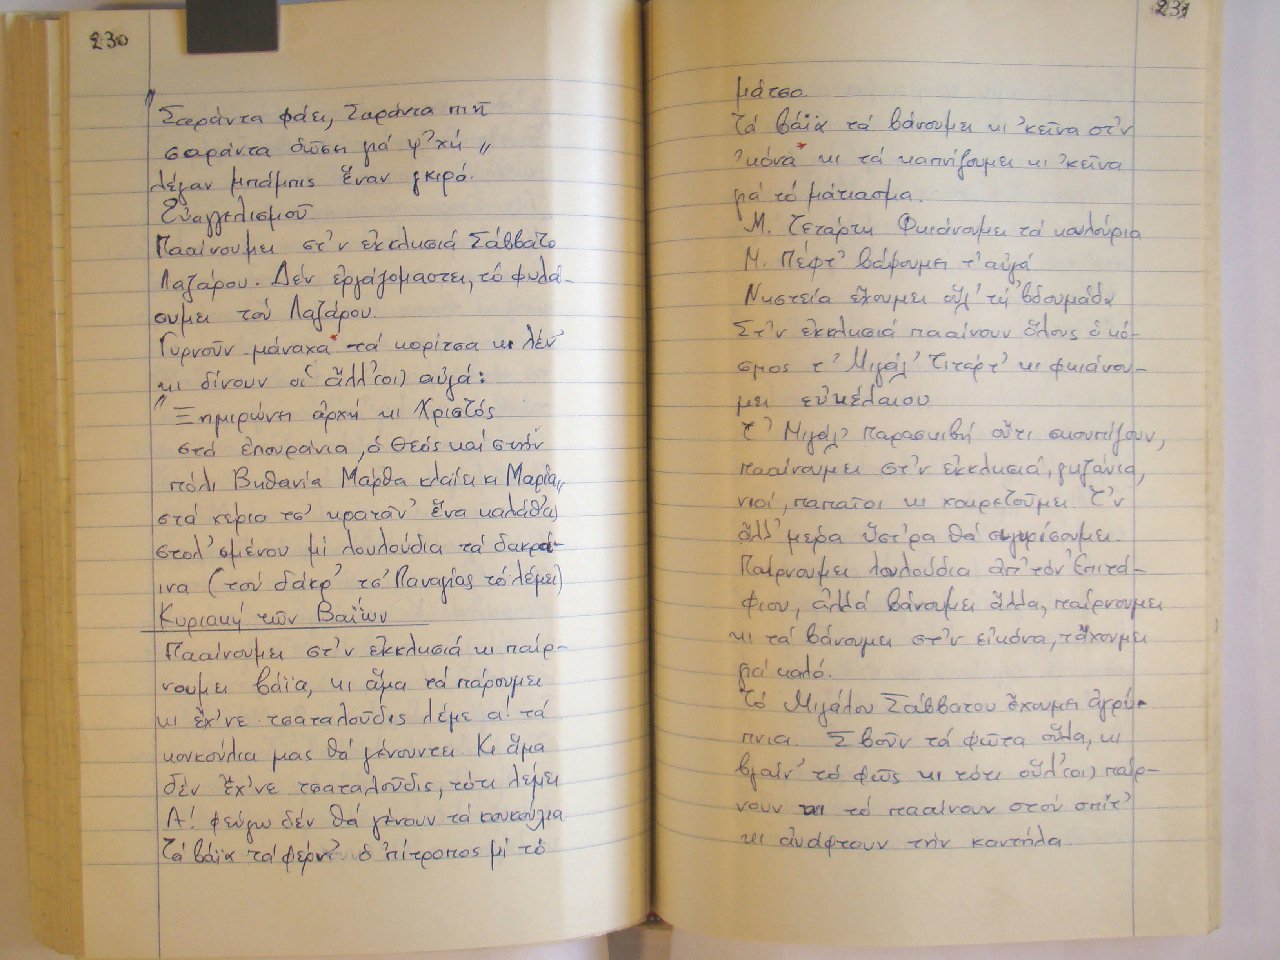 230
"Σαράντα φάει, Σαράντα πιῆ
σαράντα δῶσει γιά ψ'χή"
λέγαν μπάμπις ἕναν γκιρό.
Εὐαγγελισμοῦ
Πααίνουμει στ'ν ἐκκλησιά Σάββατο
Λαζάρου. Δέν ἐργάζομαστει, τό φυλά-
ουμει τοῦ Λαζάρου.
Γυρνοῦν μάναχα* τά κορίτσα κι λέν'
κι δίνουν οἱ ἄλλ'(οι) αὐγά:
"Ξημιρώνει ἀρχή κι Χριστός
στά ἐπουράνια, ὁ Θεός καί στήν
πόλι Βηθανία Μάρθα κλαίει κι Μαρία"
στά χέρια τσ' κρατᾶν' ἕνα καλάθ(ι)
στολ'σμένου μί λουλούδια τά δακρά-
ινα (τοῦ δάκρ' τσ' Παναγίας τό λέμει)
Κυριακή τῶν Βαΐων
Πααίνουμει στ'ν ἐκκλησιά κι παίρ-
νουμει βάϊα, κι ἅμα τά πάρουμει
κι ἔχ'νε τσαταλοῦδις λέμε ἀ! τά
κουκούλια μας θά γένουντει. Κι ἅμα
δέν ἔχ'νε τσαταλοῦδις, τότι λέμει
Α! φεύγω δέν θά γένουν τά κουκούλια
Τά βάϊα τά φέρν' ὁ 'πίτροπος μί τό
231
μάτσο.
Τά βάϊα τά βάνουμει κι 'κεῖνα στ'ν
'κόνα* κι τά καπνίζουμει κι 'κεῖνα
γιά τό μάτιασμα.
Μ. Τετάρτη Φκιάνουμει τά κουλούρια
Μ. Πέφτ' βάφουμει τ' αὐγά
Νηστεία ἔχουμει οὕλ' τή 'βδουμάδα
Στ'ν ἐκκλησιά πααίνουν ὅλους ὁ κό-
σμος τ' Μιγάλ' Τιτάρτ' κι φκιάνου-
μει εὐκέλαιου
Τ' Μιγάλ' Παρασκιβή οὔτι σκουπίζουν,
πααίνουμει στ'ν ἐκκλησιά, γκζάνια,
νιοί, παπαῖοι κι χαιρετοῦμει. Τ'ν
ἄλλ' μέρα ὕστ'ρα θά συγυρίσουμει.
Παίρνουμει λουλούδια ἀπ' τόν Ἐπιτά-
φιου, ἀλλά βάνουμει ἄλλα, παίρνουμει
κι τά βάνουμει στ'ν εἰκόνα, τἄχουμει
γιά καλό.
Τό Μιγάλου Σάββατου ἔχουμει ἀγρύ-
πνια. Σβοῦν τά φῶτα οὕλα, κι
βγαίν' τό φῶς κι τότι οὕλ'(οι) παίρ-
νουν κι τό πααίνουν στού σπίτ'
κι ἀνάφτουν τήν καντήλα.